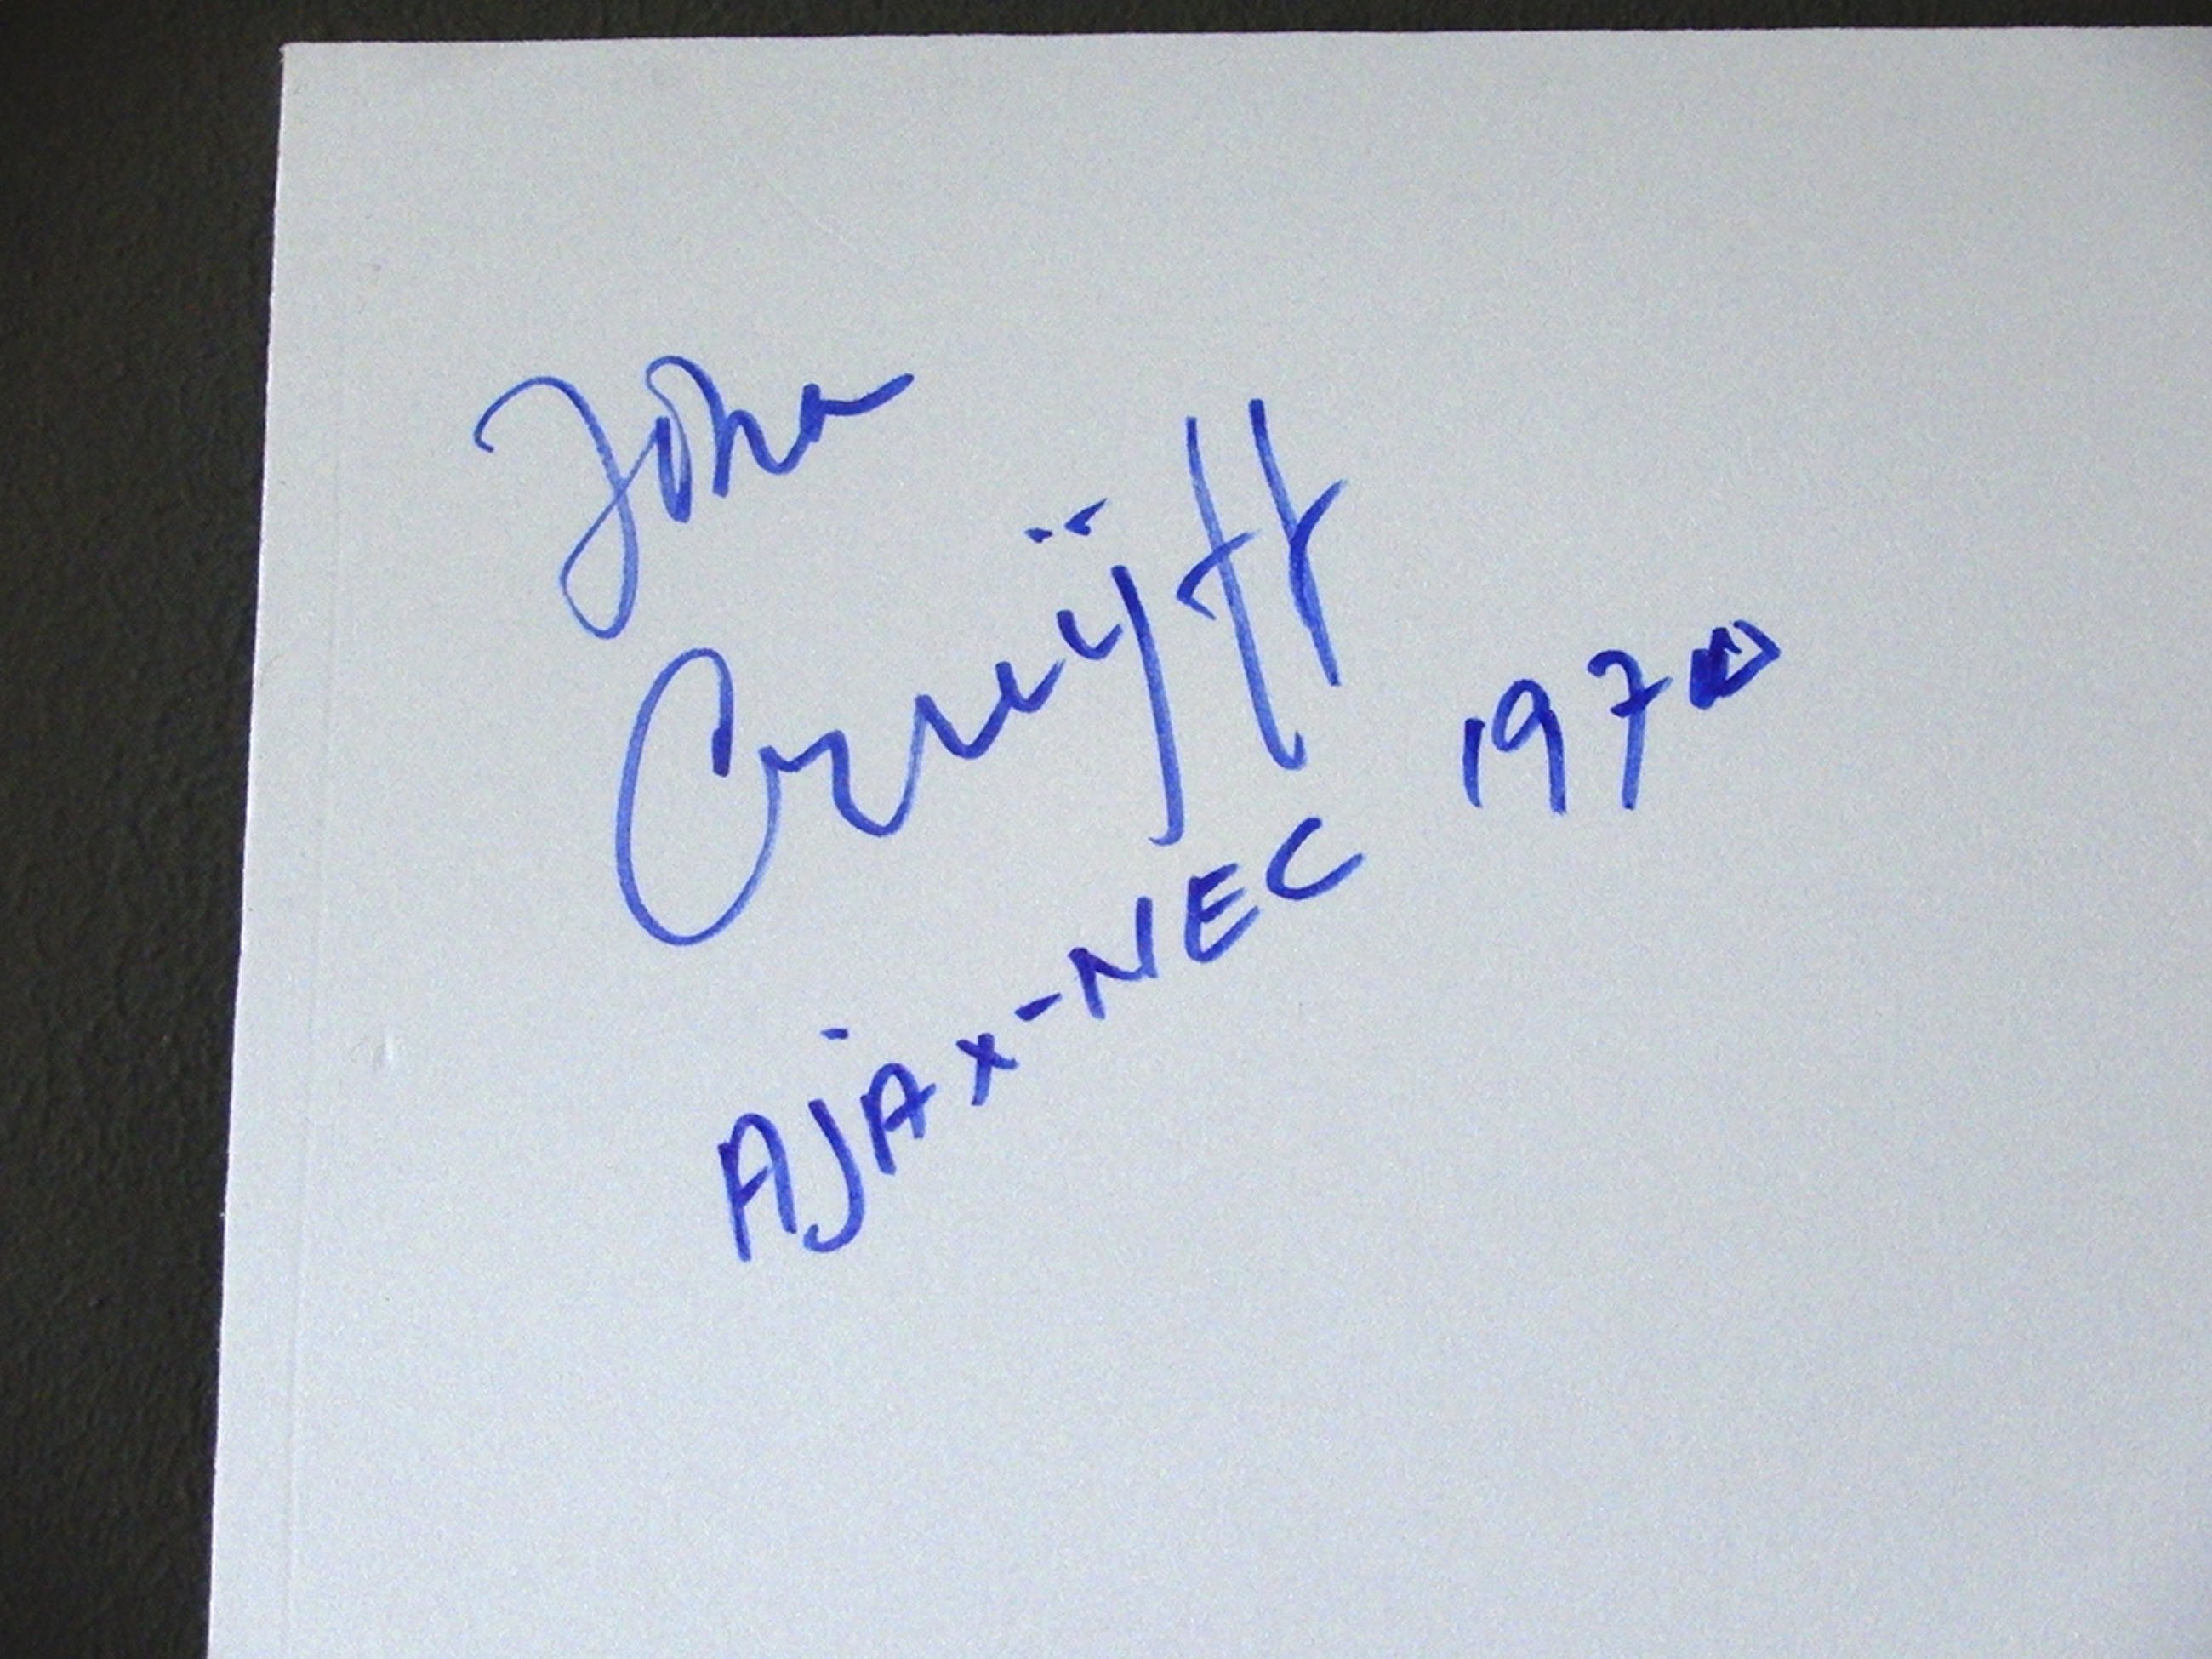 Johan
Cruijff
AjAx-NEC